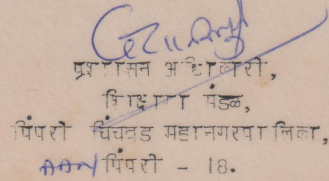 प्रशासन अधिकारी,
शिक्षण मंडळ,
पिंपरी चिंचवड महानगरपालिका,
पिंपरी - 18.